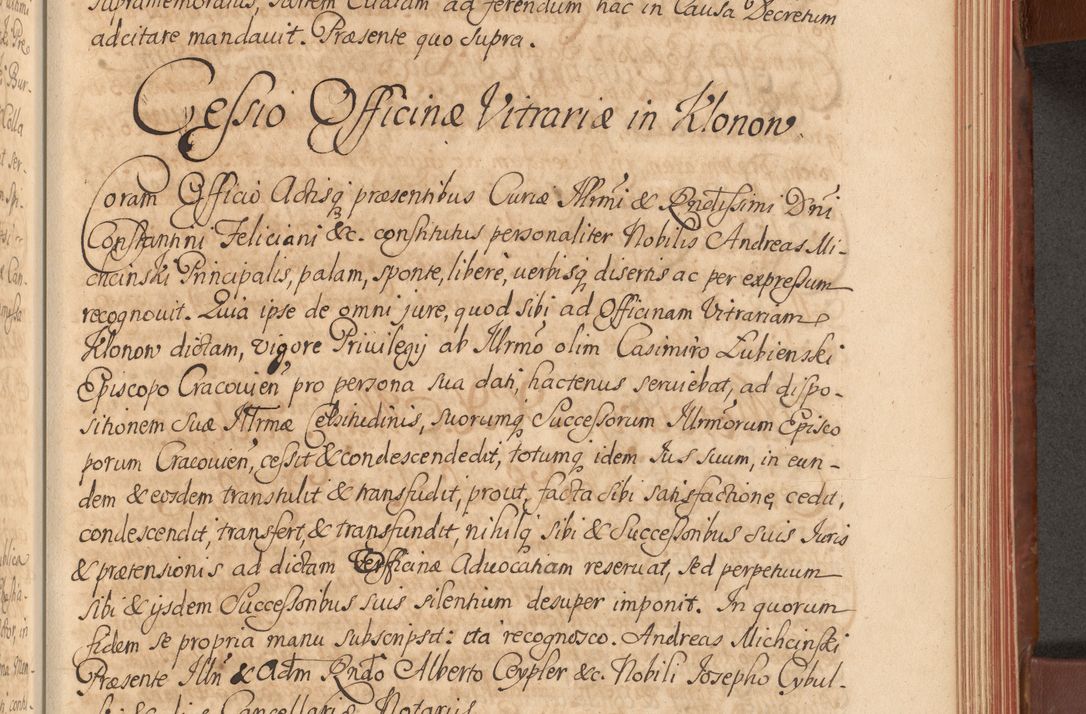 supramemoratus, satrem Citatum ad ferendum hac in Causa Decretum
adcitare mandauit. Præsente quo supra.
Cessio Officinæ Vitrariæ in Klonow
Coram Officio Actisq præsentibus Curiæ Illrmi & Rndissimi Dni
Constantini Feliciani &c. constitutus personaliter Nobilis Andreas Mi-
chcinski Principalis, palam, sponte, libere, verbisq disertis ac per expressum
recognouit. Quia ipse de omni jure, quod sibi ad Officinam Vitrariam
Klonow dictam, vigore Priuilegij ab Illrmo olim Casimiro Lubienski
Episcopo Cracouien pro persona sua dati, hactenus seruiebat, ad dispo-
sitionem Suæ Illrmæ Celsitudinis, suorumq Successorum Illrmorum Episco
porum Cracouien, cessit & condescendedit, totumq idem Jus suum, in eun-
dem & eosdem transtulit & transfudit, prout, facta sibi satisfactione, cedit,
condescendit, transfert, & transfundit, nihilq sibi & Successoribus suis Juris
& prætensionis ad dictam Officinæ Aduocatiam reseruat, sed perpetuum
sibi & ijsdem Successoribus suis silentium desuper imponit. In quorum
fidem se propria manu subscripsit: ita recognosco. Andreas Michcinski
Præsente Illri & Adm Rndo Alberto Ceypler &c. Nobili Josepho Cybul-
Cancellariæ Notarius